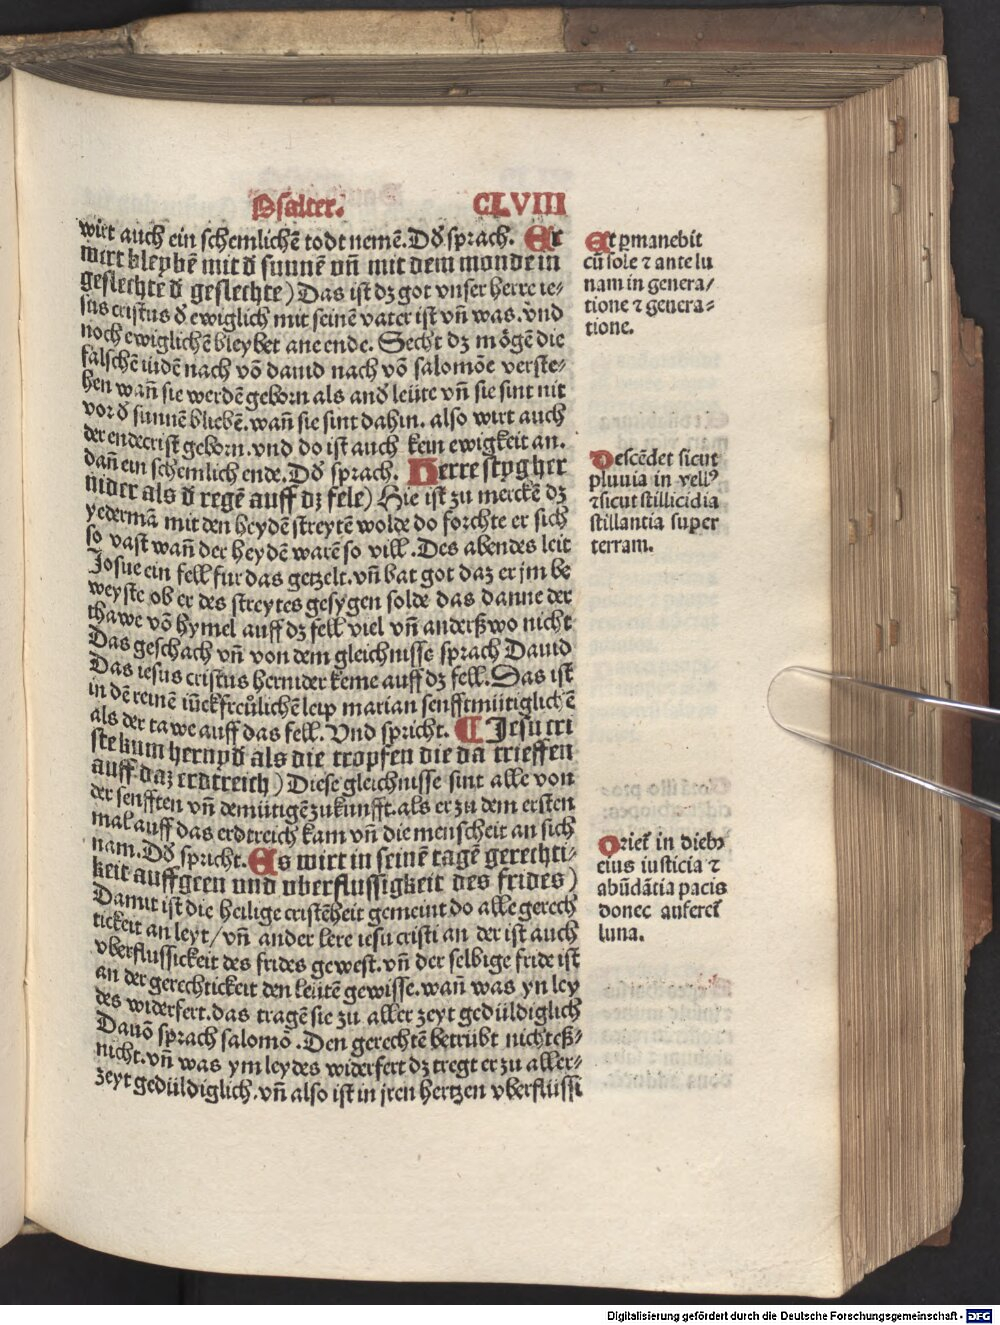 Psalter. CLVIII
wirt auch ein schemlichē todt nemē. Dđ sprach. Er
wirt bleybē mit đ sunnē vñ mit dem monde in
geslechte đ geslechte) Das ist dz got vnser herre ie-
sus cristus đ ewiglich mit seinē vater ist vñ was. vnd
noch ewiglichē bleybet ane ende. Secht dz mögē die
falschē iudē nach vō dauid nach vō salomōe verste-
hen wañ sie werdē geborn als and̄ leüte vñ sie sint nit
vor đ sunnē bliebē. wañ sie sint dahin. also wirt auch
der endecrist geborn. vnd do ist auch kein ewigkeit an.
dañ ein schemlich ende. Dđ sprach. Herre styg her
nider als đ regē auff dz fele) Hie ist zu merckē dz
yedermā mit den heydē streytē wolde do forchte er sich
so vast wañ der heydē warē so vill. Des abendes leit
Josue ein fell fur das getzelt. vñ bat got daz er jm be
weyste ob er des streytes gesygen solde das danne der
thawe vō hymel auff dz fell viel vñ anderßwo nicht
Das geschach vñ von dem gleichnisse sprach Dauid
Das iesus cristus hernider keme auff dz fell. Das ist
in dē reinē iūckfreülichē leip marian senfftmütiglichē
als der tawe auff das fell. Vnd spricht. ¶ Jesu cri
ste kum hernyđ als die tropfen die da trieffen
auff daz erdtreich) Diese gleichnisse sint alle von
der senfften vñ demütigē zukunfft. als er zu dem ersten
mal auff das erdtreich kam vñ die menscheit an sich
nam. Dđ spricht. Es wirt in seinē tagē gerechti-
keit auffgeen und vberflussigkeit des frides)
Damit ist die heilige cristēheit gemeint do alle gerech
tickeit an leyt/ vñ ander lere iesu cristi an der ist auch
vberflussickeit des frides gewest. vñ der selbige fride ist
an der gerechtickeit den leütē gewisse. wañ was yn ley
des widerfert. das tragē sie zu aller zeyt gedüldiglich
Dauō sprach salomō. Den gerechtē betrübt nichteß-
nicht. vñ was ym leydes widerfert dz tregt er zu aller-
zeyt gedüldiglich. vñ also ist in jren hertzen vberflüssi
Et ꝑmanebit
cū sole ⁊ ante lu
nam in genera/
tione ⁊ genera-
tione.
Descēdet sicut
pluuia in vellꝰ
⁊sicut stillicidia
stillantia super
terram.
Orieť in diebꝫ
eius iusticia ⁊
abūdātia pacis
donec aufereť
luna.
Digitalisierung gefördert durch die Deutsche Forschungsgemeinschaft - DFG